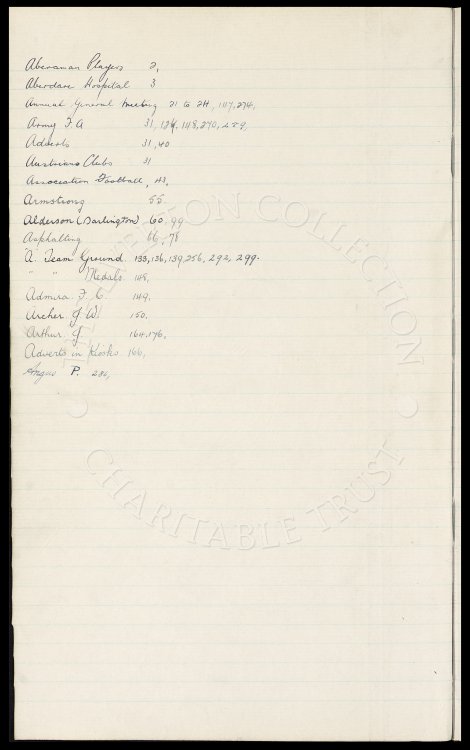 Aberaman Players 2,
Aberdare Hospital 3
Annual General Meeting 21 to 24, 117, 274,
Army F.A 31, 124, 148, 270, 289,
Adverts 31, 40
Austrians Clubs 31
Association Football, 43,
Armstrong 55
Alderson (Darlington) 60, 99
Asphalting 66, 78
A. Team Ground 133, 136, 139, 256, 292, 299.
" " Medals 148,
Admira F.C. 149,
Archer J W. 150,
Arthur J 164, 176,
Adverts in Kiosks 166,
Angus P. 286,
COLLECTION
CHARITABLE TRUST